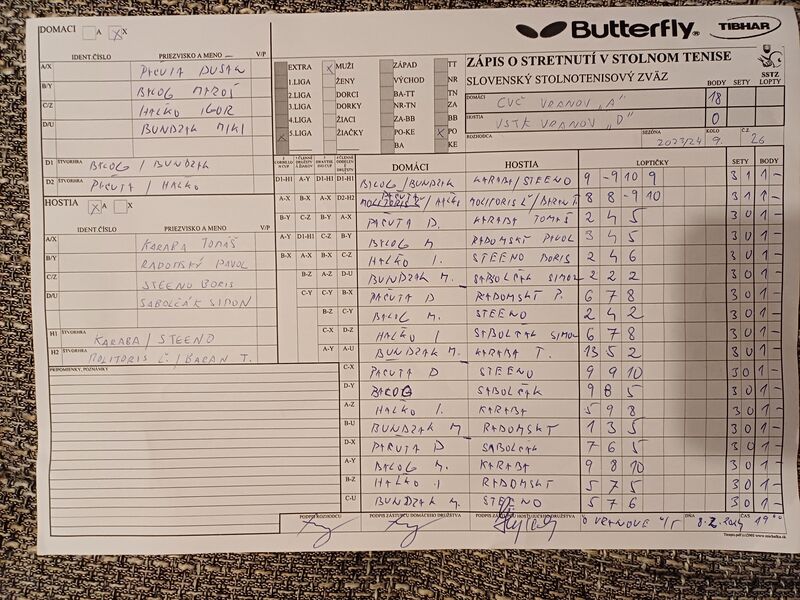 DOMÁCI A X
Butterfly
TIBHAR
ZÁPIS O STRETNUTÍ V STOLNOM TENISE
SLOVENSKÝ STOLNOTENISOVÝ ZVÄZ
SSTZ
IDENT.ČÍSLO PRIEZVISKO A MENO V/P
A/X PACUTA DUŠAN
B/Y BALOG MAROŠ
C/Z HALKO IGOR
D/U BUNDZAK MIKI
D1 ŠTVORHRA BALOG / BUNDZAK
D2 ŠTVORHRA PACUTA / HALKO
EXTRA X MUŽI ZÁPAD TT
1.LIGA ŽENY VÝCHOD NR
2.LIGA DORCI BA-TT TN
3.LIGA DORKY NR-TN ZA
4.LIGA ŽIACI ZA-BB BB
X 5.LIGA ŽIAČKY PO-KE X PO
BA KE
BODY SETY LOPTY
DOMÁCI CVČ VRANOV "A" 18
HOSTIA VSTK VRANOV "D" 0
ROZHODCA SEZÓNA 2023/24 KOLO 9. Č.Z. 26
HOSTIA X A X
IDENT.ČÍSLO PRIEZVISKO A MENO V/P
A/X KARABA TOMÁŠ
B/Y RADOMSKÝ PAVOL
C/Z STEENO BORIS
D/U SABOLČÁK SIMON
H1 ŠTVORHRA KARABA / STEENO
H2 ŠTVORHRA MOLITORIS Ľ / BARAN T.
PRIPOMIENKY, POZNÁMKY
DOMÁCI HOSTIA LOPTIČKY SETY BODY
D1-H1 A-Y D1-H1 D1-H1 BALOG / BUNDZAK KARABA / STEENO 9 -9 10 9 3 1 1 -
A-X B-X A-X D2-H2 PACUTA / HALKO MOLITORIS Ľ / BARAN T. 8 8 -9 10 3 1 1 -
B-Y C-Z B-Y A-X PACUTA D. KARABA TOMÁŠ 2 4 5 3 0 1 -
A-Y D1-H1 C-Z B-Y BALOG M. RADOMSKÝ PAVOL 3 4 5 3 0 1 -
B-X A-X B-X C-Z HALKO I. STEENO BORIS 2 4 6 3 0 1 -
B-Z A-Z D-U BUNDZAK M. SABOLČÁK SIMON 2 2 2 3 0 1 -
C-Y C-Y B-X PACUTA D RADOMSKÝ P. 6 7 8 3 0 1 -
B-Z C-Y BALOG M. STEENO 2 4 2 3 0 1 -
C-X D-Z HALKO I SABOLČÁK SIMON 6 7 8 3 0 1 -
A-Y A-U BUNDZAK M. KARABA T. 13 5 2 3 0 1 -
C-X PACUTA D STEENO 9 9 10 3 0 1 -
D-Y BALOG SABOLČÁK 9 8 5 3 0 1 -
A-Z HALKO I. KARABA 5 9 8 3 0 1 -
B-U BUNDZAK M. RADOMSKÝ 1 3 5 3 0 1 -
D-X PACUTA D SABOLČÁK 7 6 5 3 0 1 -
A-Y BALOG M. KARABA 9 8 10 3 0 1 -
B-Z HALKO I RADOMSKÝ 5 7 5 3 0 1 -
C-U BUNDZAK M. STEENO 5 7 6 3 0 1 -
PODPIS ROZHODCU PODPIS ZÁSTUPCU DOMÁCEHO DRUŽSTVA PODPIS ZÁSTUPCU HOSŤUJÚCEHO DRUŽSTVA V VRANOVE n/T DŇA 8.2.2024 ČAS 19 00